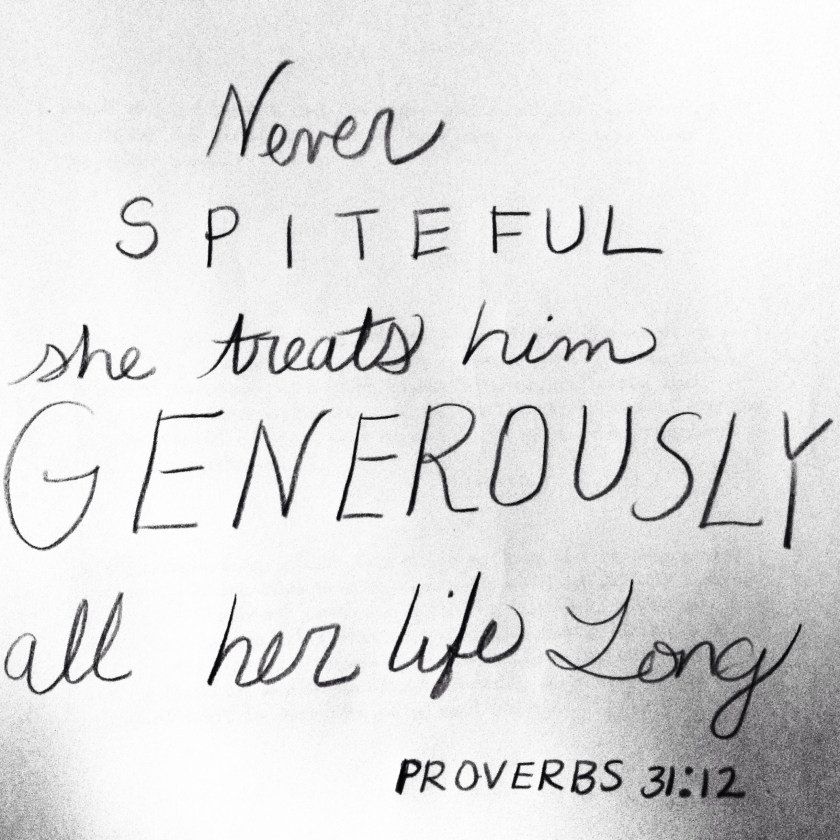 Never
SPITEFUL
she treats him
GENEROUSLY
all her life Long
PROVERBS 31:12